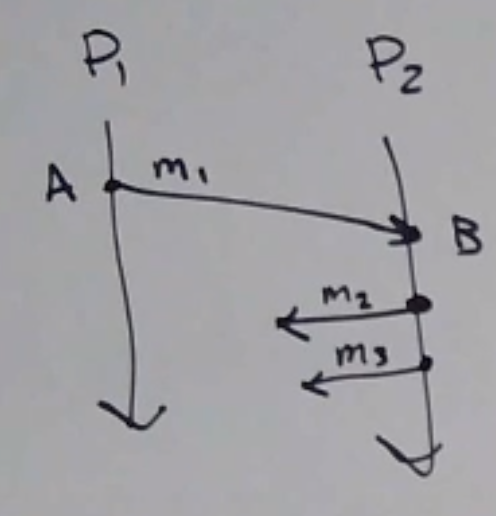 P₁ P₂
A m₁
B
m₂
m₃